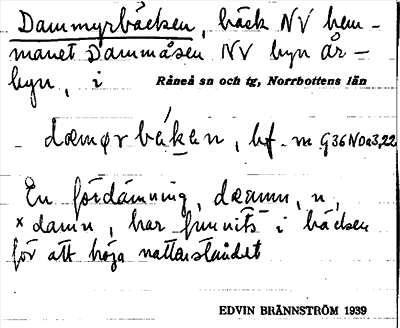 Dammyrbäcken, bäck NV hem-
manet Dammåsen NV byn År-
byn, i Råneå sn och tg, Norrbottens län
dæmørbækan, bf. m G36N0a3,22
En fördämning, dæmm, n,
× damn, har funnits i bäcken
för att höja vattenståndet
EDVIN BRÄNNSTRÖM 1939